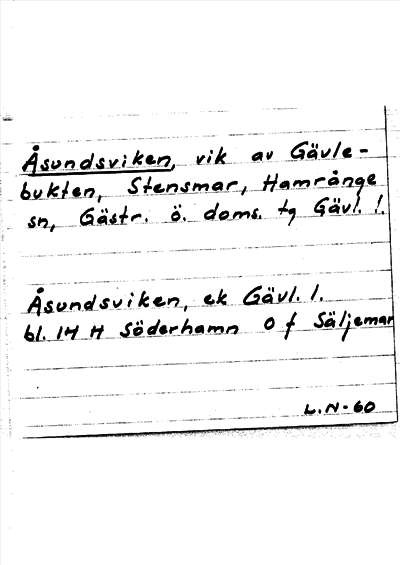 Åsundsviken, vik av Gävle-
bukten, Stensmar, Hamrånge
sn, Gästr. ö. doms. tg Gävl. l.
Åsundsviken, ek Gävl. l.
bl. 14 H Söderhamn O f Säljemar
L.N-60